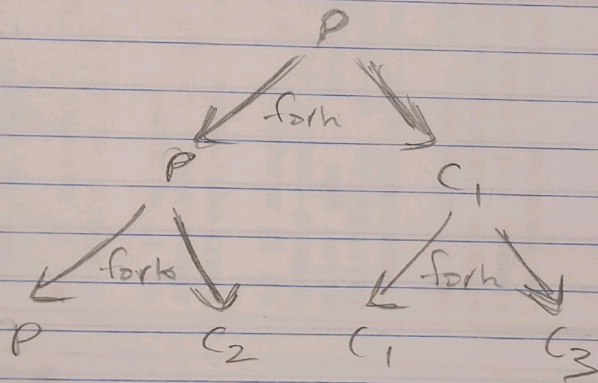 P
fork
P C₁
fork fork
P C₂ C₁ C₃